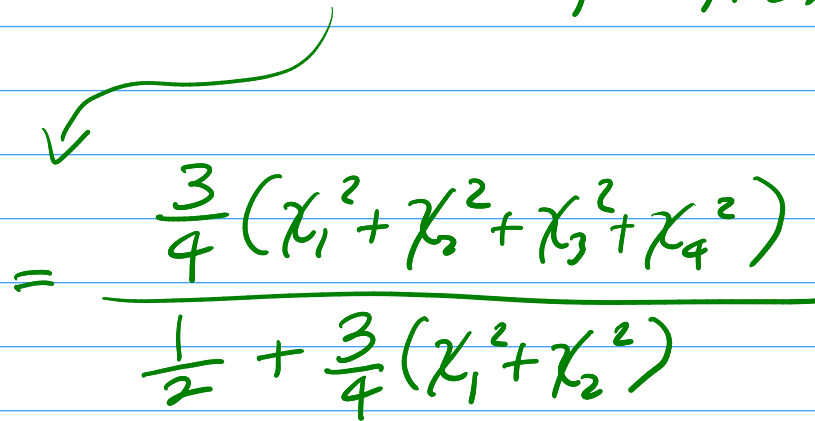 = \frac{\frac{3}{4}(χ_1^2 + χ_2^2 + χ_3^2 + χ_4^2)}{\frac{1}{2} + \frac{3}{4}(χ_1^2 + χ_2^2)}